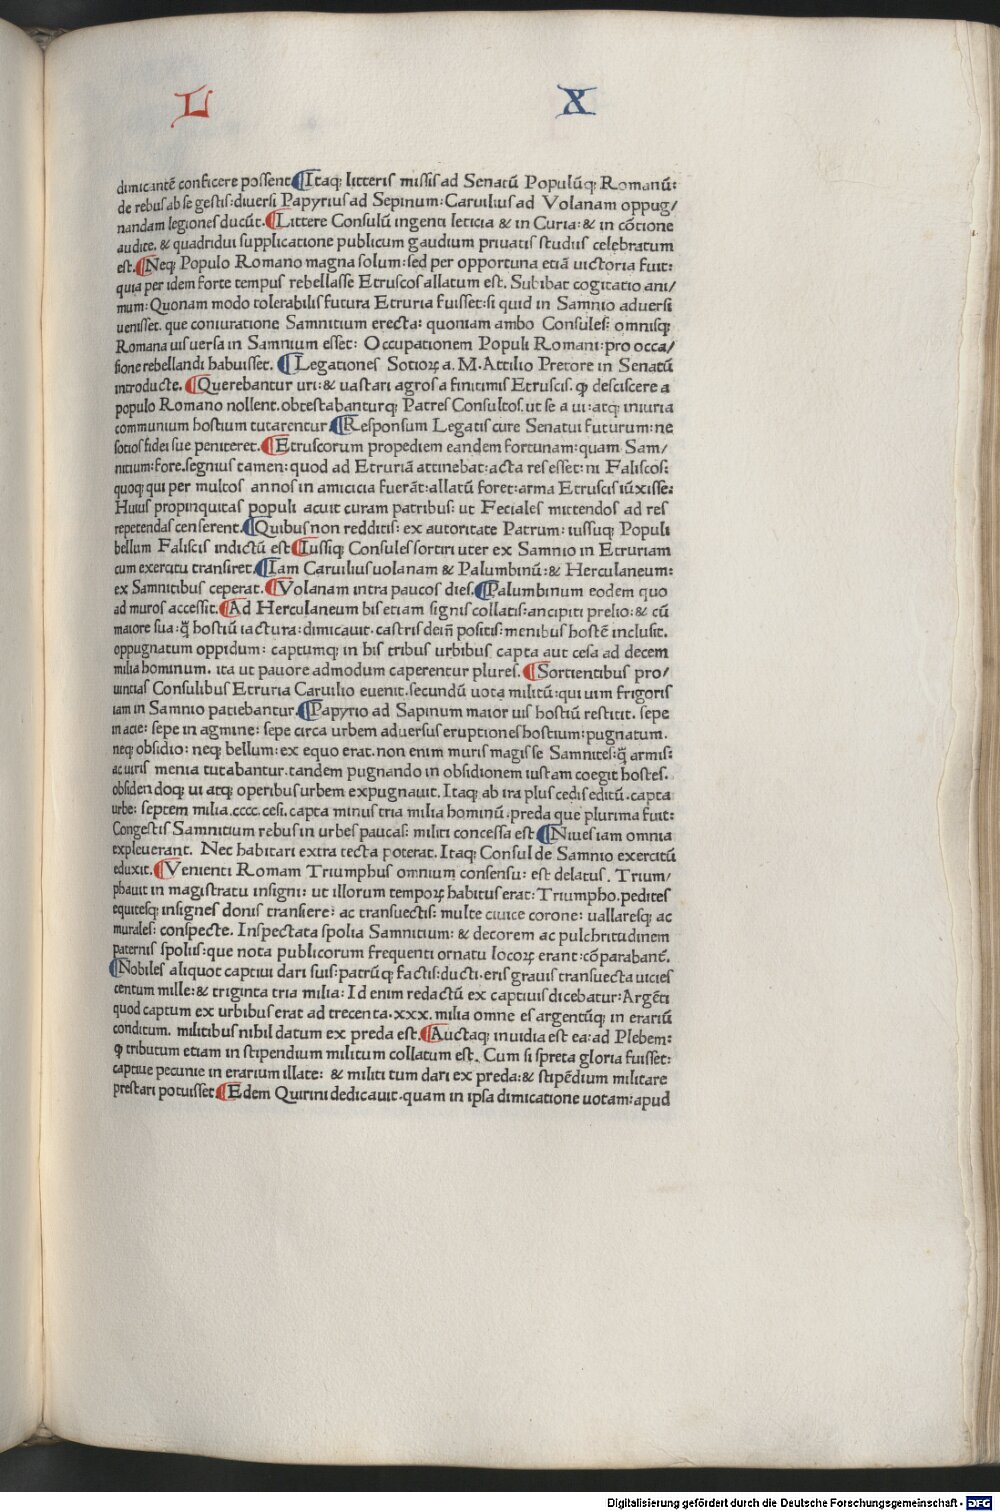 L X
dimicantē conficere poſſent ¶Itaq; litteris miſſis ad Senatū Populūq; Romanū:
de rebus ab ſe geſtis: diuerſi Papyrius ad Sepinum: Caruilius ad Volanam oppug/
nandam legiones ducūt. ¶Littere Conſulū ingenti leticia & in Curia: & in cōtione
audite. & quadridui ſupplicatione publicum gaudium priuatis ſtudiis celebratum
eſt. ¶Neq; Populo Romano magna ſolum: ſed per opportuna etiā uictoria fuit:
quia per idem forte tempus rebellaſſe Etruſcos allatum eſt. Subibat cogitatio ani/
mum: Quonam modo tolerabilis futura Etruria fuiſſet: ſi quid in Samnio aduerſi
ueniſſet. que coniuratione Samnitium erecta: quoniam ambo Conſules: omniſq;
Romana uis uerſa in Samnium eſſet: Occupationem Populi Romani: pro occa/
ſione rebellandi habuiſſet. ¶Legationes Sotioꝝ a. M. Attilio Pretore in Senatū
introducte. ¶Querebantur uri: & uaſtari agros a finitimis Etruſcis. ꝙ deſciſcere a
populo Romano nollent. obteſtabanturq; Patres Conſultos. ut ſe a ui: atq; iniuria
communium hoſtium tutarentur ¶Reſponſum Legatis cure Senatui futurum: ne
ſotios fidei ſue peniteret. ¶Etruſcorum propediem eandem fortunam: quam Sam/
nitium: fore. ſegnius tamen: quod ad Etruriā attinebat: acta res eſſet: ni Faliſcos:
quoq; qui per multos annos in amicicia fuerāt: allatū foret: arma Etruſcis iūxiſſe:
Huius propinquitas populi acuit curam patribus: ut Feciales mittendos ad res
repetendas cenſerent. ¶Quibus non redditis: ex autoritate Patrum: iuſſuq; Populi
bellum Faliſcis indictū eſt ¶Iuſſiq; Conſules ſortiri uter ex Samnio in Etruriam
cum exercitu tranſiret. ¶Iam Caruilius uolanam & Palumbinū: & Herculaneum:
ex Samnitibus ceperat. ¶Volanam intra paucos dies. ¶Palumbinum eodem quo
ad muros acceſſit. ¶Ad Herculaneum bis etiam ſignis collatis: ancipiti prelio: & cū
maiore ſua: ꝗ̄ hoſtiū iactura: dimicauit. caſtris dein̄ poſitis: menibus hoſtē incluſit.
oppugnatum oppidum: captumq; in his tribus urbibus capta aut ceſa ad decem
milia hominum. ita ut pauore admodum caperentur plures. ¶Sortientibus pro/
uintias Conſulibus Etruria Caruilio euenit. ſecundū uota militū: qui uim frigoris
iam in Samnio patiebantur. ¶Papyrio ad Sapinum maior uis hoſtiū reſtitit. ſepe
in acie: ſepe in agmine: ſepe circa urbem aduerſus eruptiones hoſtium: pugnatum.
neq; obſidio: neq; bellum: ex equo erat. non enim muris magis ſe Samnites: ꝗ̄ armis:
ac uiris menia tutabantur. tandem pugnando in obſidionem iuſtam coegit hoſtes.
obſidendoq; ui atq; operibus urbem expugnauit. Itaq; ab ira plus cedis editū. capta
urbe: ſeptem milia .cccc. ceſi. capta minus tria milia hominū. preda que plurima fuit:
Congeſtis Samnitium rebus in urbes paucas: militi conceſſa eſt ¶Niues iam omnia
expleuerant. Nec habitari extra tecta poterat. Itaq; Conſul de Samnio exercitū
eduxit. ¶Venienti Romam Triumphus omnium conſenſu: eſt delatus. Trium/
phauit in magiſtratu inſigni: ut illorum tempoꝝ habitus erat: Triumpho. pedites
equiteſq; inſignes donis tranſiere: ac tranſuectis: multe ciuice corone: uallareſq; ac
murales: conſpecte. Inſpectata ſpolia Samnitium: & decorem ac pulchritudinem
paternis ſpoliis: que nota publicorum frequenti ornatu locoꝝ erant: cōparabant̄.
¶Nobiles aliquot captiui dari ſuis: patrūq; factis: ducti. eris grauis tranſuecta uicies
centum mille: & triginta tria milia: Id enim redactū ex captiuis dicebatur: Argēti
quod captum ex urbibus erat ad trecenta .xxx. milia omne es argentūq; in erariū
conditum. militibus nihil datum ex preda eſt. ¶Auctaq; inuidia eſt ea: ad Plebem:
ꝙ tributum etiam in ſtipendium militum collatum eſt. Cum ſi ſpreta gloria fuiſſet:
captiue pecunie in erarium illate: & militi tum dari ex preda: & ſtipēdium militare
preſtari potuiſſet ¶Edem Quirini dedicauit. quam in ipſa dimicatione uotam: apud
Digitalisierung gefördert durch die Deutsche Forschungsgemeinschaft - DFG